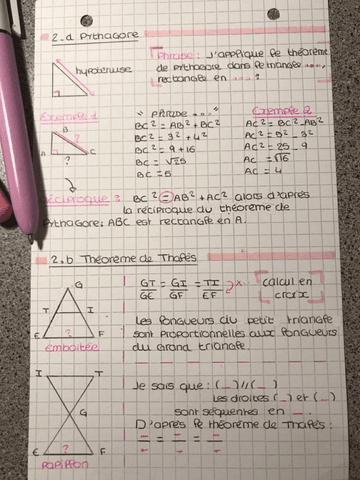 2.a Pythagore
Phrase : J'applique le théorème
de Pythagore dans le triangle ....,
rectangle en .... ?
hypoténuse
Exemple 1
B
A
C
?
?
" Phrase .... "
BC² = AB² + BC²
BC² = 3² + 4²
BC² = 9 + 16
BC = √25
BC = 5
Exemple 2
AC² = BC² - AB²
AC² = 5² - 3²
AC² = 25 - 9
AC = √16
AC = 4
Réciproque : BC² = AB² + AC² alors d'après
la réciproque du théorème de
Pythagore; ABC est rectangle en A.
2.b Théorème de Thalès
G
T
I
E
?
F
emboitée
GT/GE = GI/GF = TI/EF
calcul en
croix
Les longueurs du petit triangle
sont proportionnelles aux longueurs
du Grand triangle.
I
T
G
E
?
F
Papillon
Je sais que : (_) // (_)
Les droites (_) et (_)
sont séquentes en _.
D'après le théorème de Thalès :
_ = _ = _